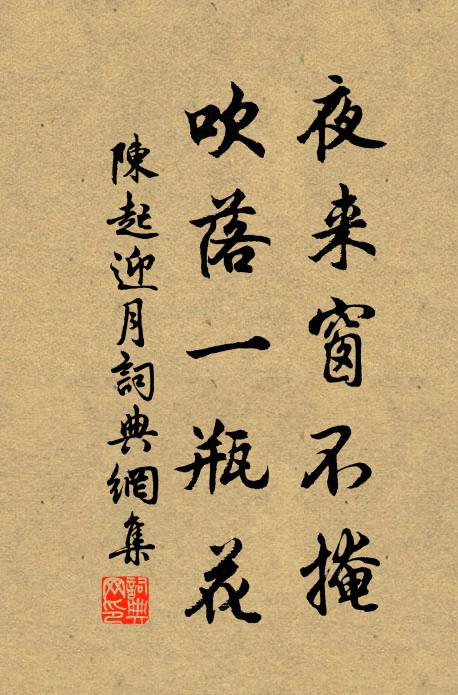 夜来窗不掩
吹落一瓶花
陳起迎月詞典網集
詞典網印